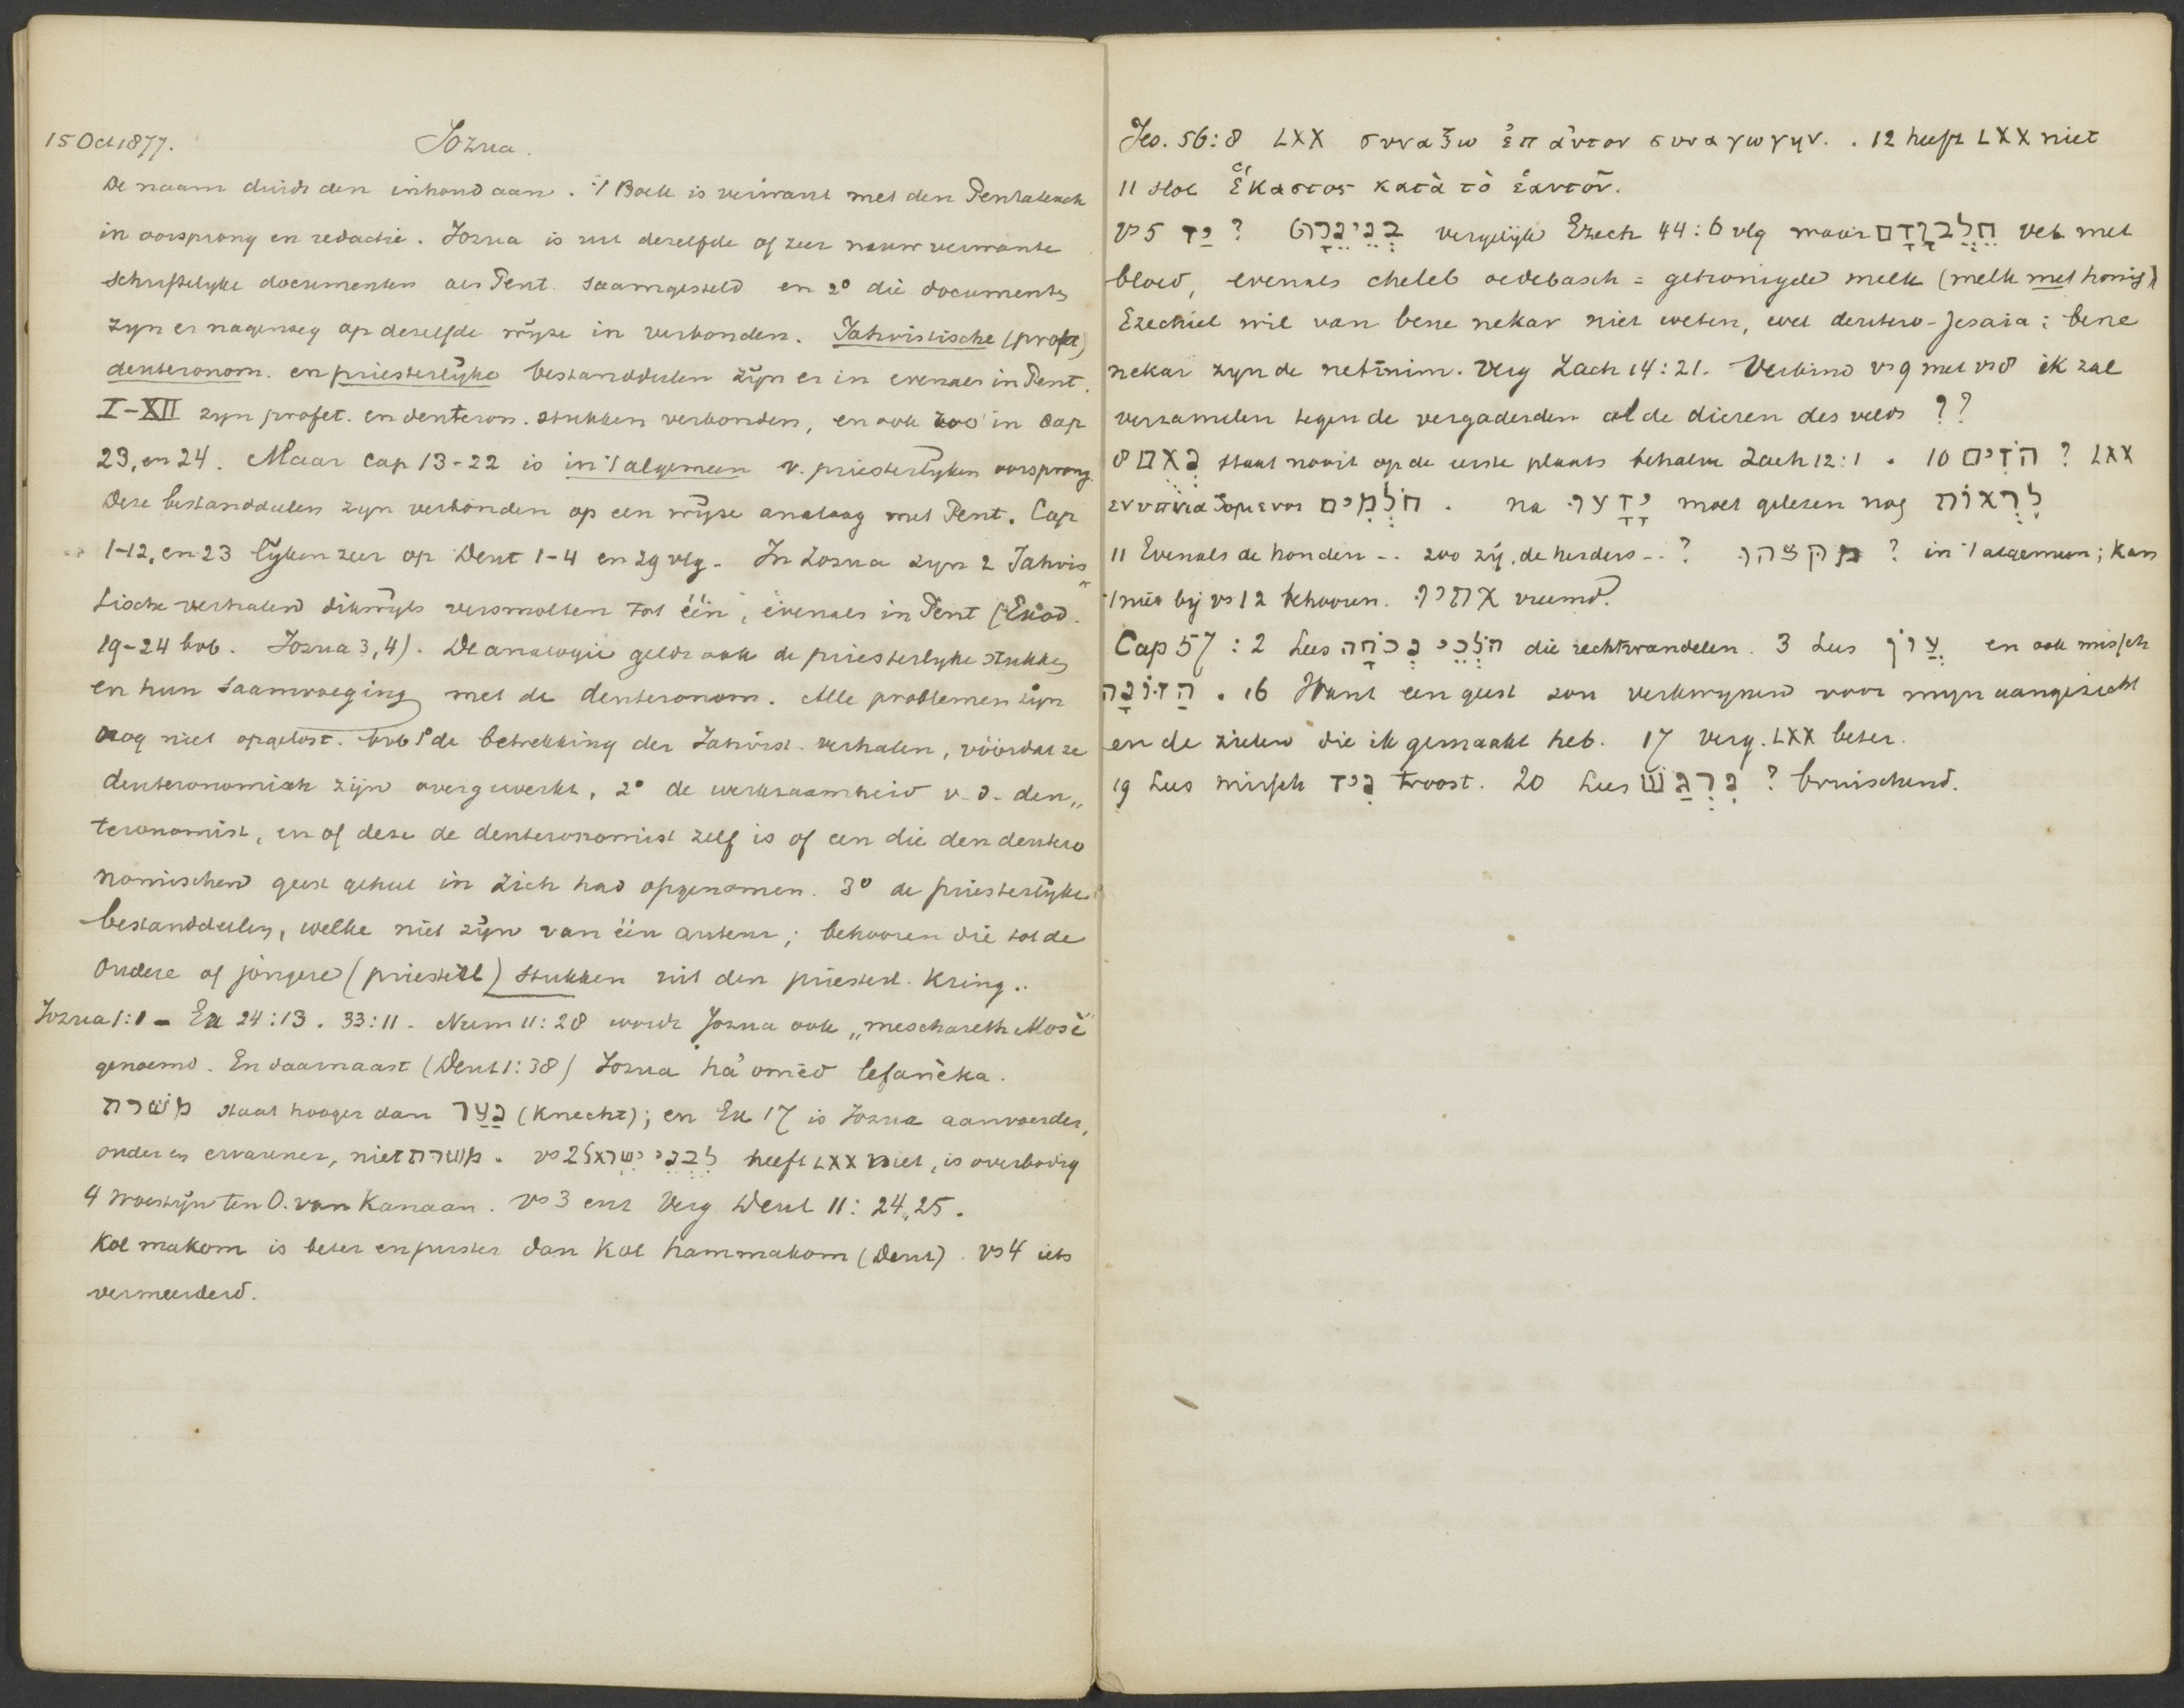 15 Oct 1877. Jozua.
De naam duidt den inhoud aan. 't Boek is verwant met den Pentateuch
in oorsprong en redactie. Jozua is uit dezelfde of zeer nauw verwante
schriftelyke documenten als Pent. saamgesteld en 2° die documenten
zyn er nagenoeg op dezelfde wyze in verbonden. Jahvistische (profet)
deuteronom. en priesterlyke bestanddeelen zyn er in evenals in Pent.
I-XII zyn profet. en deuteron. stukken verbonden, en ook zoo in cap
23, en 24. Maar cap 13-22 is in 't algemeen v. priesterlyken oorsprong.
Deze bestanddeelen zyn verbonden op een wyze analoog met Pent. Cap
1-12, en 23 lyken zeer op Deut 1-4 en 29 vlg. In Jozua zyn 2 Jahvis„
tische verhalen dikwyls versmolten tot één, evenals in Pent (Exod.
19-24 bvb. Jozua 3,4). De analogie geldt ook de priesterlyke stukken
en hun saamvoeging met de deuteronom. Alle problemen zyn
nog niet opgelost. bvb 1° de betrekking der Jahvist. verhalen, vóórdat ze
deuteronomisch zyn overgewerkt, 2° de werkzaamheid v. d. deu„
teronomist, en of deze de deuteronomist zelf is of een die den deutero
nomischen geest geheel in zich had opgenomen. 3° de priesterlyke
bestanddeelen, welke niet zyn van één auteur; behooren die tot de
oudere of jongere (priesterl) stukken uit den priesterl. kring..
Jozua 1:1 - Ex 24:13. 33:11. Num 11:28 wordt Jozua ook „meschareth Mosè"
genoemd. En daarnaast (Deut 1:38) Jozua ha'omēd lefanèka.
משרת staat hooger dan נַעַר (knecht); en Ex 17 is Jozua aanvoerder,
ouder en ervarener, niet משרת. vs 2 לִבְנֵי ישראל heeft LXX niet, is overbodig
4 woestyn ten O. van Kanaan. vs 3 enz Verg Deut 11: 24, 25.
Kol makom is beter en juister dan Kol hammakom (Deut). vs 4 iets
vermeerderd.
Jes. 56:8 LXX συναξω ἐπ ἀυτον συναγωγην. . 12 heeft LXX niet
11 slot ἕκαστος κατὰ τὸ ἑαυτοῦ.
vs 5 יַד ? בְּנֵי נֵכָר vergelyk Ezech 44:6 vlg waar חֵלֶב וָדָם vet met
bloed, evenals cheleb oedebasch = gehonigde melk (melk met honig)
Ezechiel wil van bene nekar niet weten, wel deutero-Jesaia: bene
nekar zyn de netînim. Verg Zach 14:21. Verbind vs 9 met vs 8 ik zal
verzamelen tegen de vergaderden al de dieren des velds ??
8 נְאֻם staat nooit op de eerste plaats behalve Zach 12:1. 10 הזים ? LXX
ενυπνιαζομενοι חֹלְמִים. na יָדָעוּ moet gelezen nog לִרְאוֹת
11 Evenals de honden -- zoo zy, de herders --? מקצהו ? in 't algemeen; kan
't niet by vs 12 behooren. אתיו vreemd.
Cap 57 : 2 Lees הֹלְכֵי נְכֹחָה die recht wandelen. 3 Lees עָוֹן en ook missch
הַזוֹנָה. 16 Want een geest zou verkwynen voor myn aangezicht
en de zielen die ik gemaakt heb. 17 verg. LXX beter.
19 Lees missch נִיד troost. 20 Lees נִרְגָּשׁ ? bruischend.